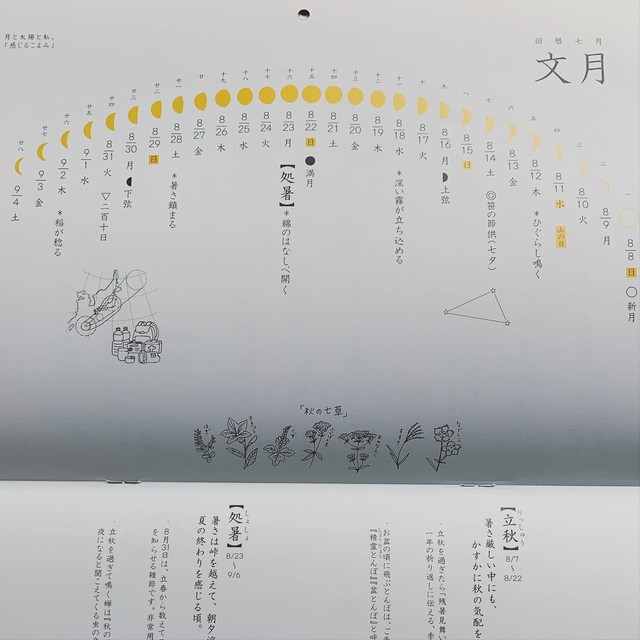 月と太陽と私。
「感じるこよみ」
旧暦七月
文月
一 8/8 日 ○新月
二 8/9 月
三 8/10 火
四 8/11 水 山の日
五 8/12 木 *ひぐらし鳴く
六 8/13 金
七 8/14 土 ◎笹の節供(七夕)
八 8/15 日
九 8/16 月 上弦
十 8/17 火
十一 8/18 水 *深い霧が立ち込める
十二 8/19 木
十三 8/20 金
十四 8/21 土
十五 8/22 日 ●満月
十六 8/23 月 【処暑】*綿のはなしべ開く
十七 8/24 火
十八 8/25 水
十九 8/26 木
廿 8/27 金
廿一 8/28 土 *暑さ鎮まる
廿二 8/29 日
廿三 8/30 月 下弦
廿四 8/31 火 ▽二百十日
廿五 9/1 水
廿六 9/2 木 *稲が稔る
廿七 9/3 金
廿八 9/4 土
「秋の七草」
【立秋】りっしゅう 8/7~8/22
暑さ厳しい中にも、
かすかに秋の気配を
・立秋を過ぎたら「残暑見舞い
一年の折り返しに伝える、季
・お盆の頃に飛ぶとんぼは、ご
『精霊とんぼ』『盆とんぼ』と呼
【処暑】しょしょ 8/23~9/6
暑さは峠を越えて、朝夕涼
夏の終わりを感じる頃。
・8月31日は、立春から数えて
を知らせる雑節です。非常用
・立秋を過ぎて鳴く蝉は『秋の
夜になると聞こえてくる虫の